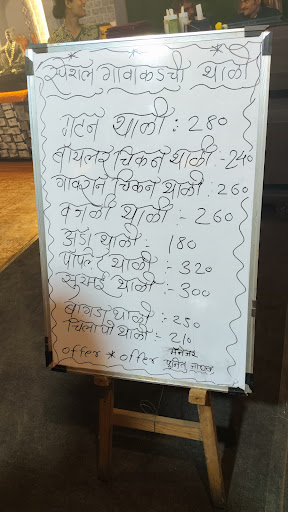 स्पेशल गावाकडची थाळी
मटन थाळी : 280
बॉयलर चिकन थाळी :- 240
गावरान चिकन थाळी : 260
वजडी थाळी :- 260
अंडा थाळी : 180
पापलेट थाळी :- 320
सुरमई थाळी :- 300
बांगडा थाळी : 250
चिलापी थाळी :- 210
offer * offer मॅनेजर